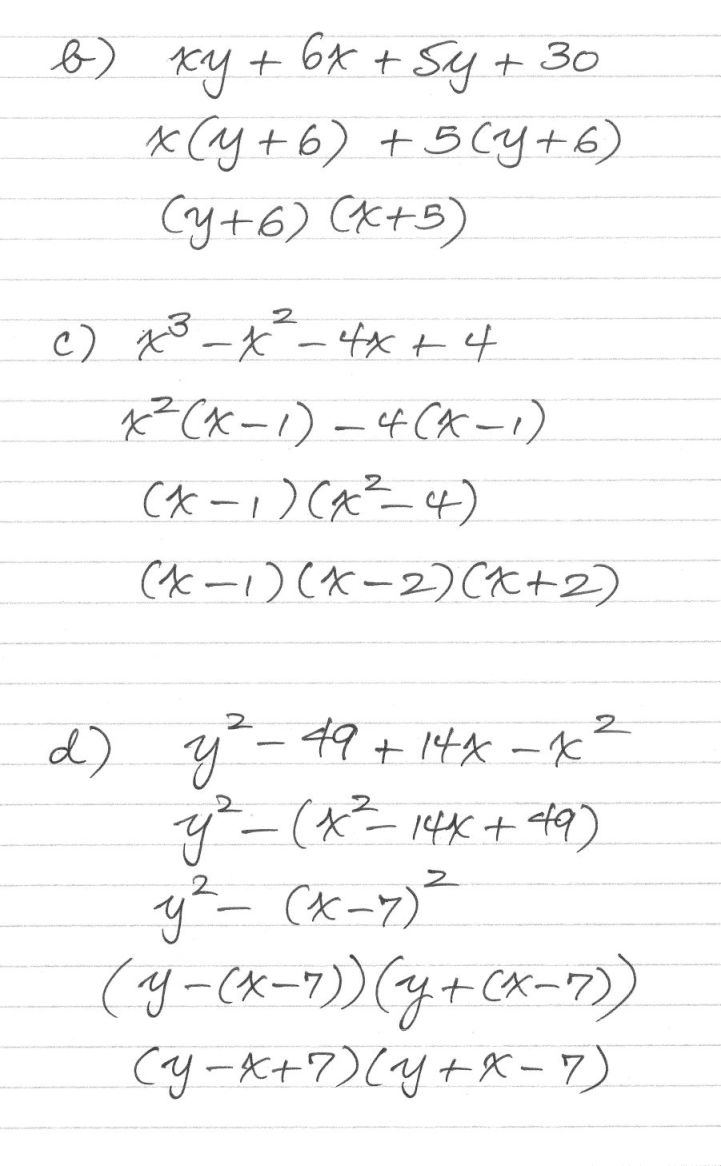 b) xy + 6x + 5y + 30
x(y+6) + 5(y+6)
(y+6) (x+5)
c) x³ - x² - 4x + 4
x²(x-1) - 4(x-1)
(x-1)(x²-4)
(x-1)(x-2)(x+2)
d) y² - 49 + 14x - x²
y² - (x² - 14x + 49)
y² - (x-7)²
(y-(x-7))(y+(x-7))
(y-x+7)(y+x-7)